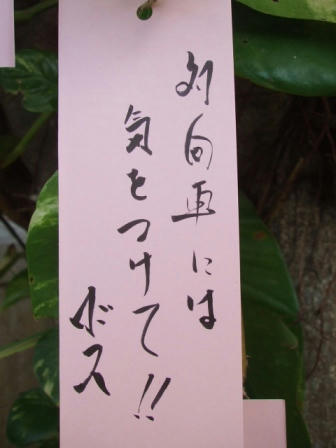 対向車には
気をつけて!!
ボス